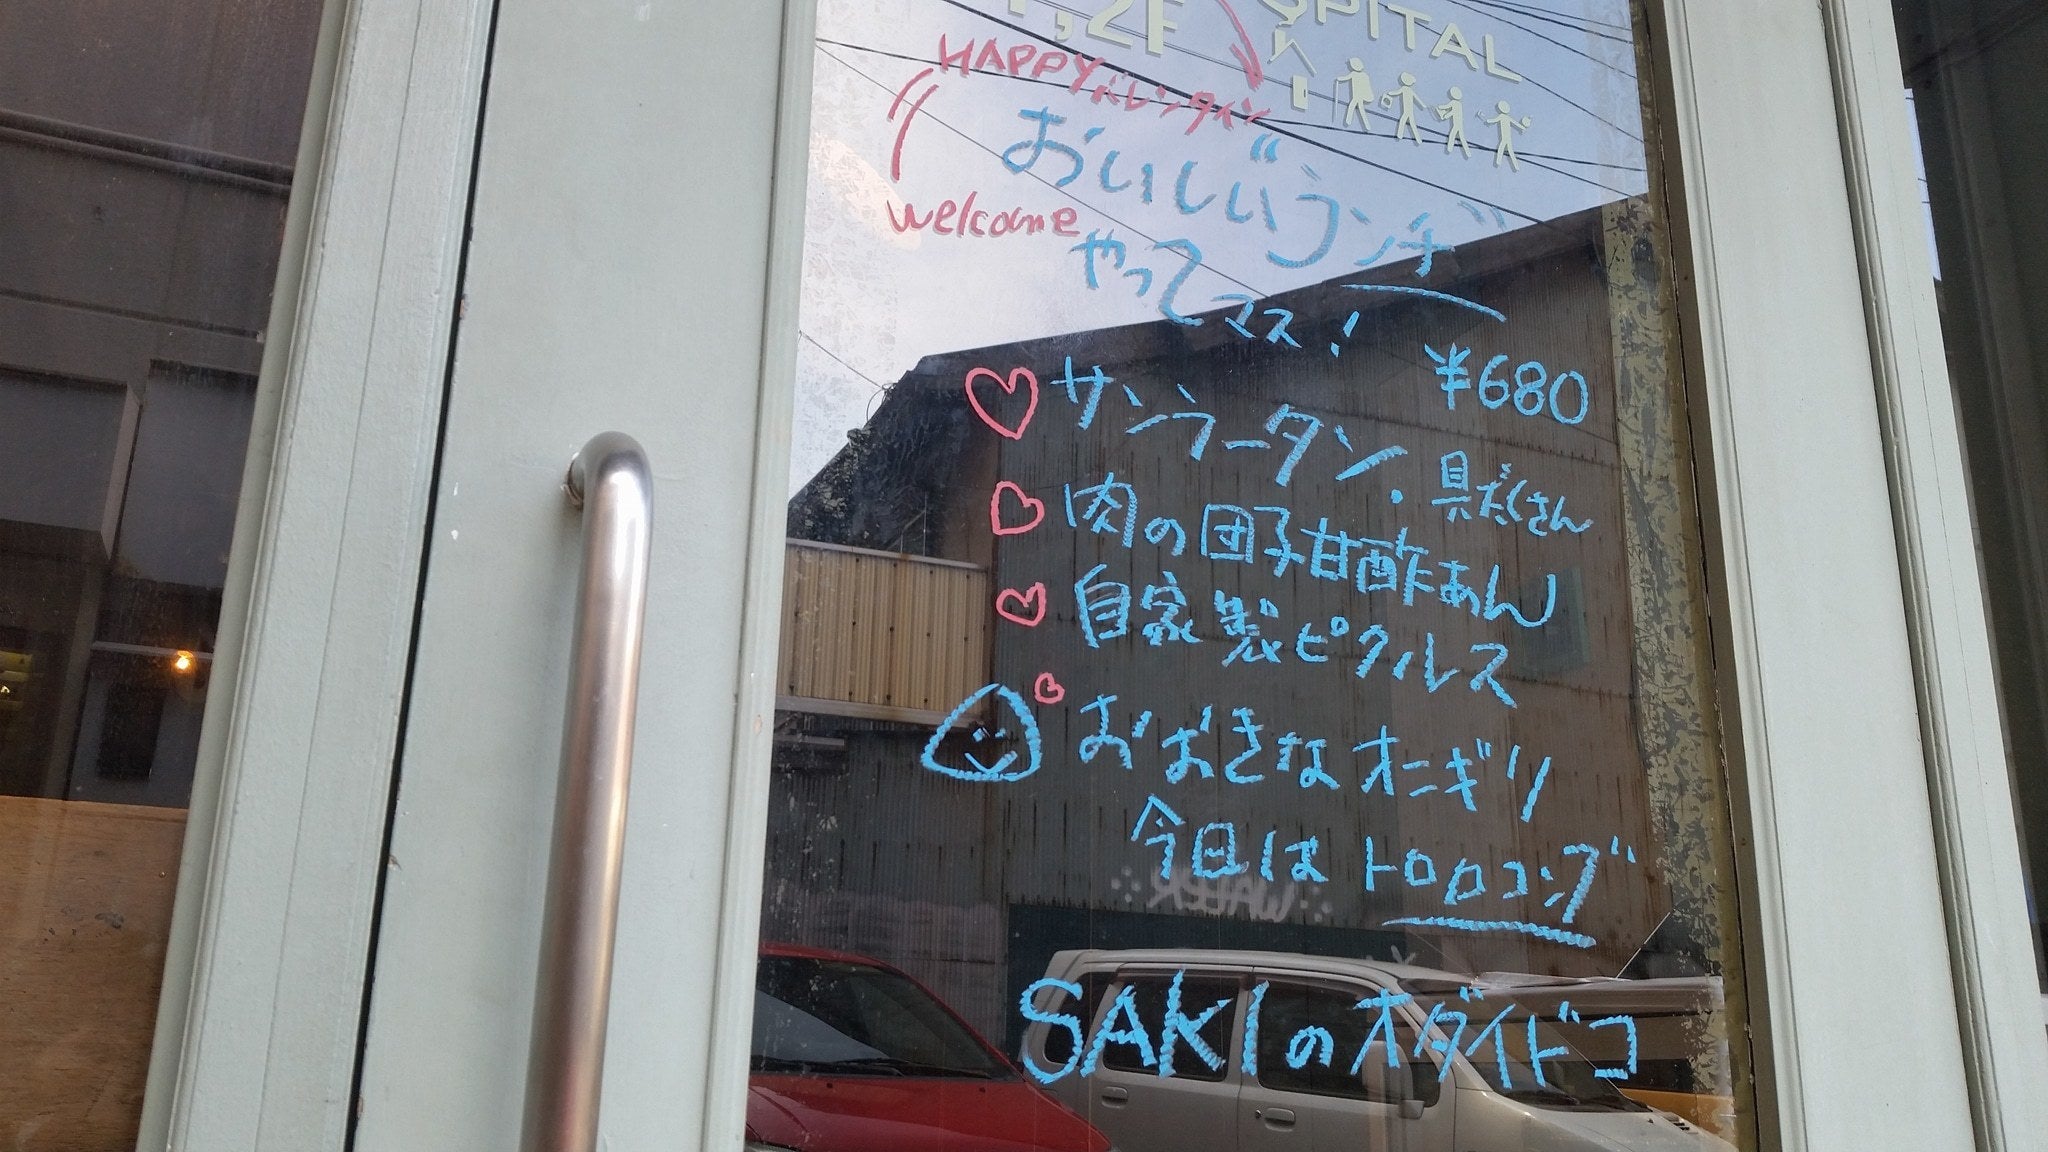 1,2F
SPITAL
HAPPYバレンタイン
welcome
おいしいランチ
やってマス!
¥680
サンラータン。具だくさん
肉の団子甘酢あん
自家製ピクルス
おおきなオニギリ
今日はトロロコンブ
SAKIのオダイドコ